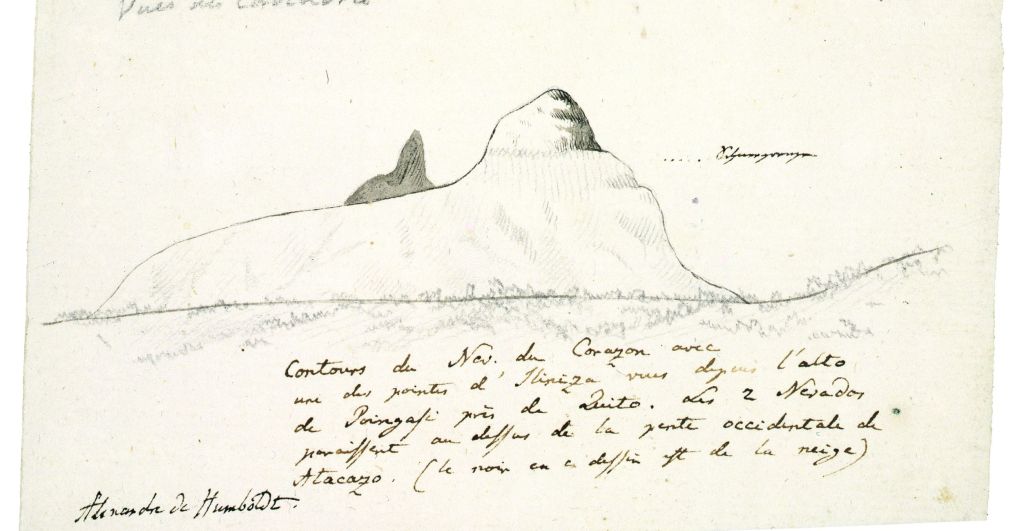 Vues des Cordillères
Schneegrenze
Contours du Nev. du Corazon avec
une des pointes d'Iliniza vues depuis l'alto
de Poingasi près de Quito. Les 2 Nevados
paraissent au dessus de la pente occidentale de
Atacazo. (le noir en ce dessin est de la neige)
Alexandre de Humboldt.